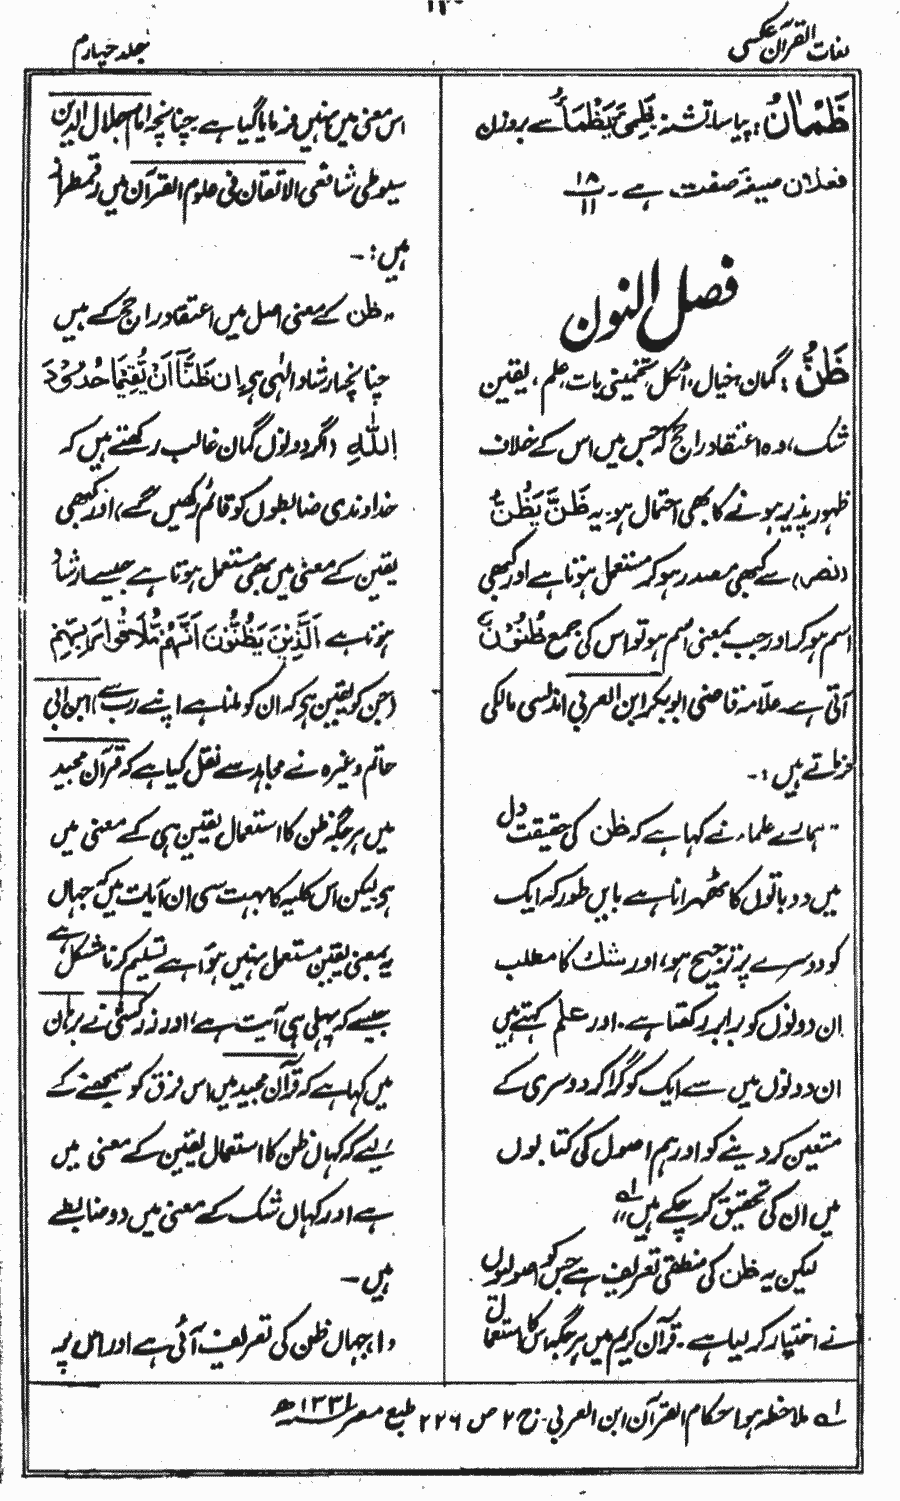 لغات القرآن عکسی
جلد چہارم
ظَمْاٰنُ: پیاسا، تشنہ، ظَمِیَٔ یَظْمَأُ سے بروزن
فعلان صیغہ صفت ہے۔ ۱۸/۱۱
فصل النون
ظَنٌّ: گمان، خیال، اٹکل، تخمینی بات، علم، یقین
شک، وہ اعتقاد راجح کہ جس میں اس کے خلاف
ظہور پذیر ہونے کا بھی احتمال ہو۔ یہ ظَنَّ یَظُنُّ
(نصر) سے کبھی مصدر ہو کر مستعمل ہوتا ہے اور کبھی
اسم ہو کر اور جب بمعنی اسم ہو تو اس کی جمع ظُنُوْنٌ
آتی ہے۔ علّامہ قاضی ابوبکر ابن العربی اندلسی مالکی
فرماتے ہیں:۔
"ہمارے علماء نے کہا ہے کہ ظن کی حقیقت دل
میں دو باتوں کا ٹھہرانا ہے بایں طور کہ ایک
کو دوسرے پر ترجیح ہو، اور شک کا مطلب
ان دونوں کو برابر رکھتا ہے۔ اور علم کہتے ہیں
ان دونوں میں سے ایک کو گرا کر دوسری کے
متعین کر دینے کو اور ہم اصول کی کتابوں
میں ان کی تحقیق کر چکے ہیں" ؎۱
لیکن یہ ظن کی منطقی تعریف ہے جس کو اصولیوں
نے اختیار کر لیا ہے۔ قرآن کریم میں ہر جگہ اس کا استعمال
اس معنی میں نہیں فرمایا گیا ہے چنانچہ امام جلال الدین
سیوطی شافعی الاتقان فی علوم القرآن میں رقمطراز
ہیں:۔
"ظن کے معنی اصل میں اعتقاد راجح کے ہیں
چنانچہ ارشاد الٰہی ہے اِنْ ظَنَّآ اَنْ یُّقِیْمَا حُدُوْدَ
اللّٰهِ (اگر دونوں گمان غالب رکھتے ہیں کہ
خداوندی ضابطوں کو قائم رکھیں گے) اور کبھی
یقین کے معنی میں بھی مستعمل ہوتا ہے جیسے ارشاد
ہوتا ہے اَلَّذِیْنَ یَظُنُّوْنَ اَنَّهُمْ مُّلٰقُوْا رَبِّهِمْ
(جن کو یقین ہے کہ ان کو ملنا ہے اپنے رب سے) ابن ابی
حاتم وغیرہ نے مجاہد سے نقل کیا ہے کہ قرآن مجید
میں ہر جگہ ظن کا استعمال یقین ہی کے معنی میں
ہے لیکن اس کلیہ کا بہت سی ان آیات میں کہ جہاں
یہ بمعنی یقین مستعمل نہیں ہوا ہے تسلیم کرنا مشکل ہے
جیسے کہ پہلی ہی آیت ہے، اور زرکشی نے برہان
میں کہا ہے کہ قرآن مجید میں اس فرق کو سمجھنے کے
لیے کہ کہاں ظن کا استعمال یقین کے معنی میں
ہے اور کہاں شک کے معنی میں دو ضابطے
ہیں۔
(۱) جہاں ظن کی تعریف آئی ہے اور اس پر
؎۱ ملاحظہ ہو احکام القرآن ابن العربی۔ ج ۲ ص ۲۲۶ طبع مصر ۱۳۳۱ھ